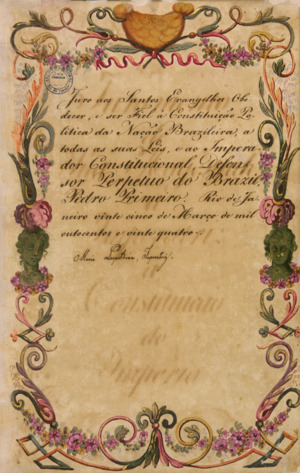 Juro aos Santos Evangelhos Obe
decer, e ser Fiel á Constituição Po
litica da Nação Brazileira, a
todas as suas Leis, e ao Impera
dor Constitucional, Defen
sor Perpetuo do Brazil,
Pedro Primeiro. Rio de Ja
neiro vinte cinco de Março de mil
oitocentos e vinte quatro.
Constituição
do
Imperio